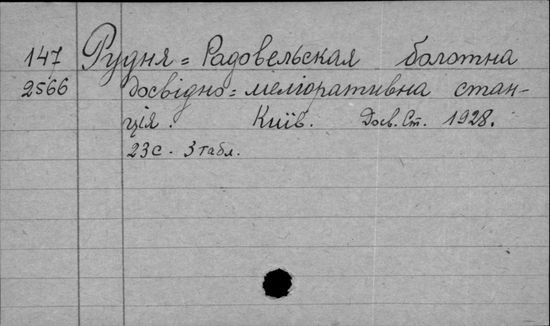 147 Рудня=Радовельская болотна
2566 досвідно=меліоративна стан-
ція. Київ. Досв. Ст. 1928.
23с. 3 табл.